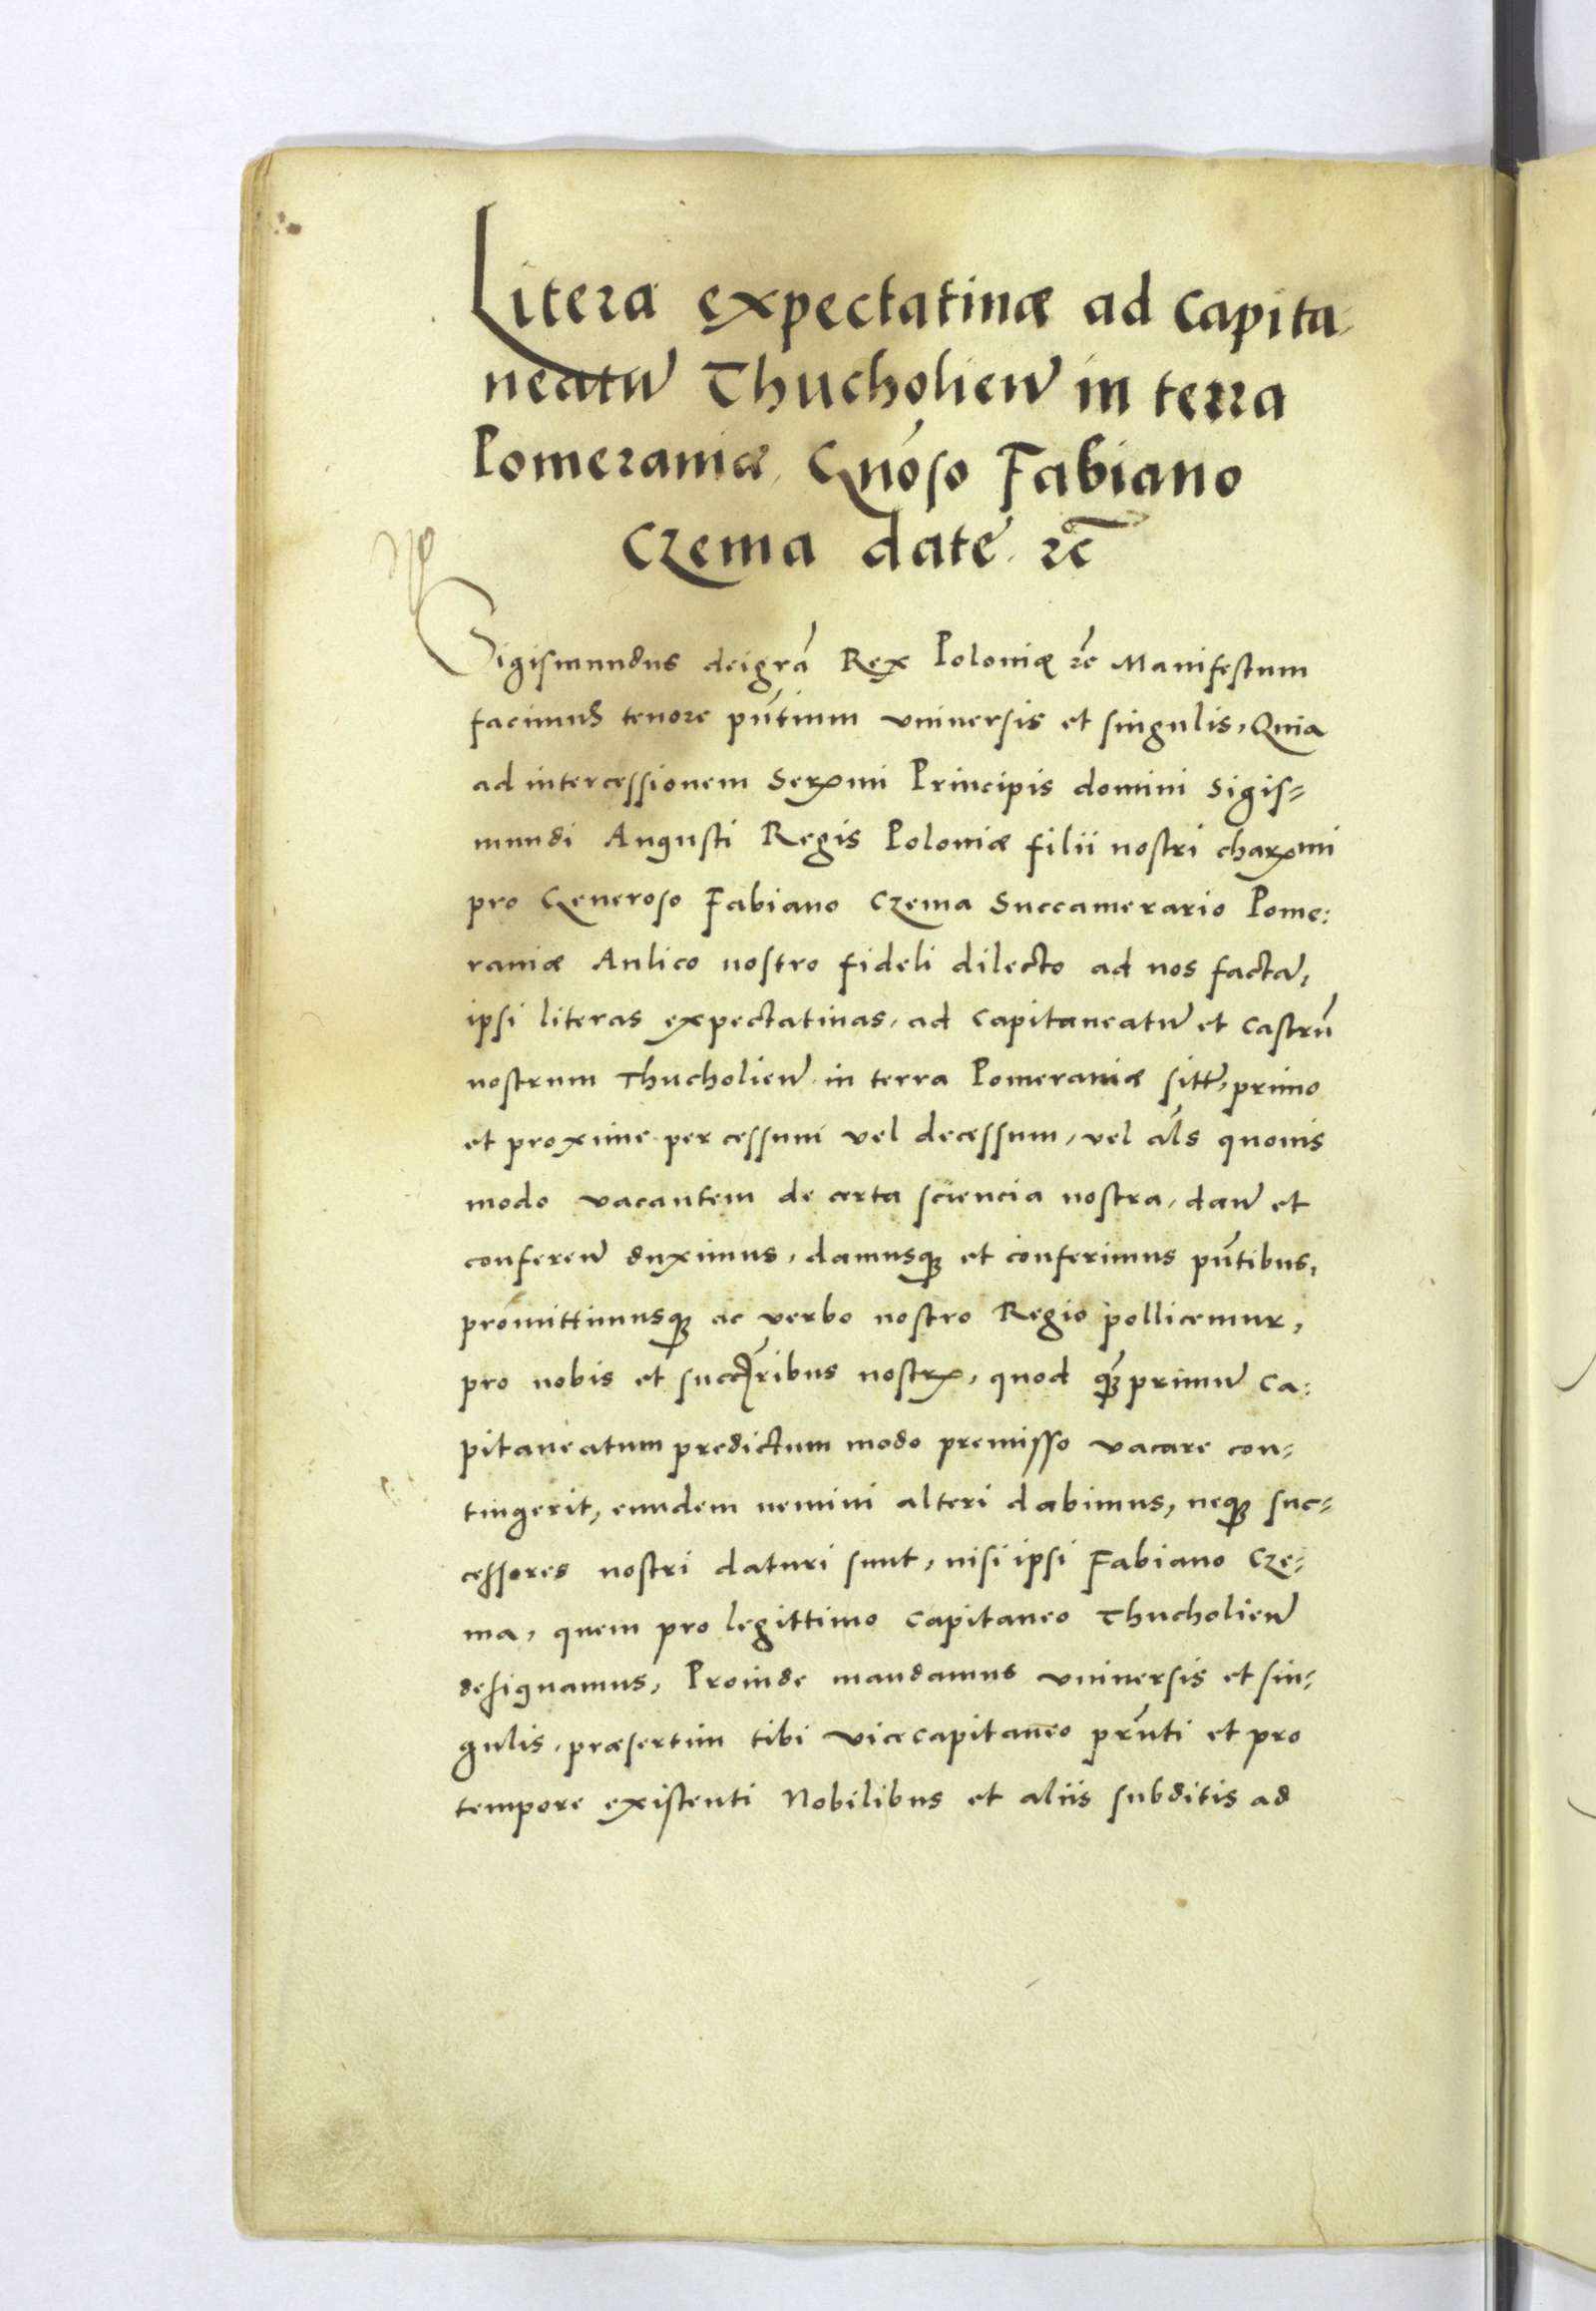 Litera expectatinæ ad Capita-
neatū Thucholien̄ in terra
Pomeraniæ, Gn̄oso Fabiano
Czema date. ⁊c̄
Sigismundus dei gr̄a Rex Poloniæ ⁊c̄ Manifestum
facimus tenore pn̄tium vniuersis et singulis, Quia
ad intercessionem Serꝫmi Principis domini Sigis=
mundi Augusti Regis Poloniæ filii nostri charꝫmi
pro Generoso Fabiano Czema Succamerario Pome:
raniæ Aulico nostro fideli dilecto ad nos factā,
ipsi literas expectatiuas, ad Capitaneatū et Castrū
nostrum Thucholien̄ in terra Pomeraniæ sitt, primo
et proxime per cessum vel decessum, vel al̄s quouis
modo vacantem de certa sciencia nostra, dan̄ et
conferen̄ duximus, damusqꝫ et conferimus pn̄tibus,
promittimusqꝫ ac verbo nostro Regio pollicemur,
pro nobis et succr̄ibus nostrꝫ, quod qꝫprimū Ca:
pitaneatum predictum modo premisso vacare con=
tingerit, eundem nemini alteri dabimus, neqꝫ suc=
cessores nostri daturi sunt, nisi ipsi Fabiano Cze=
ma, quem pro legittimo Capitaneo Thucholien̄
designamus, Proinde mandamus vniuersis et sin=
gulis, præsertim tibi vicecapitaneo prn̄ti et pro
tempore existenti Nobilibus et aliis subditis ad